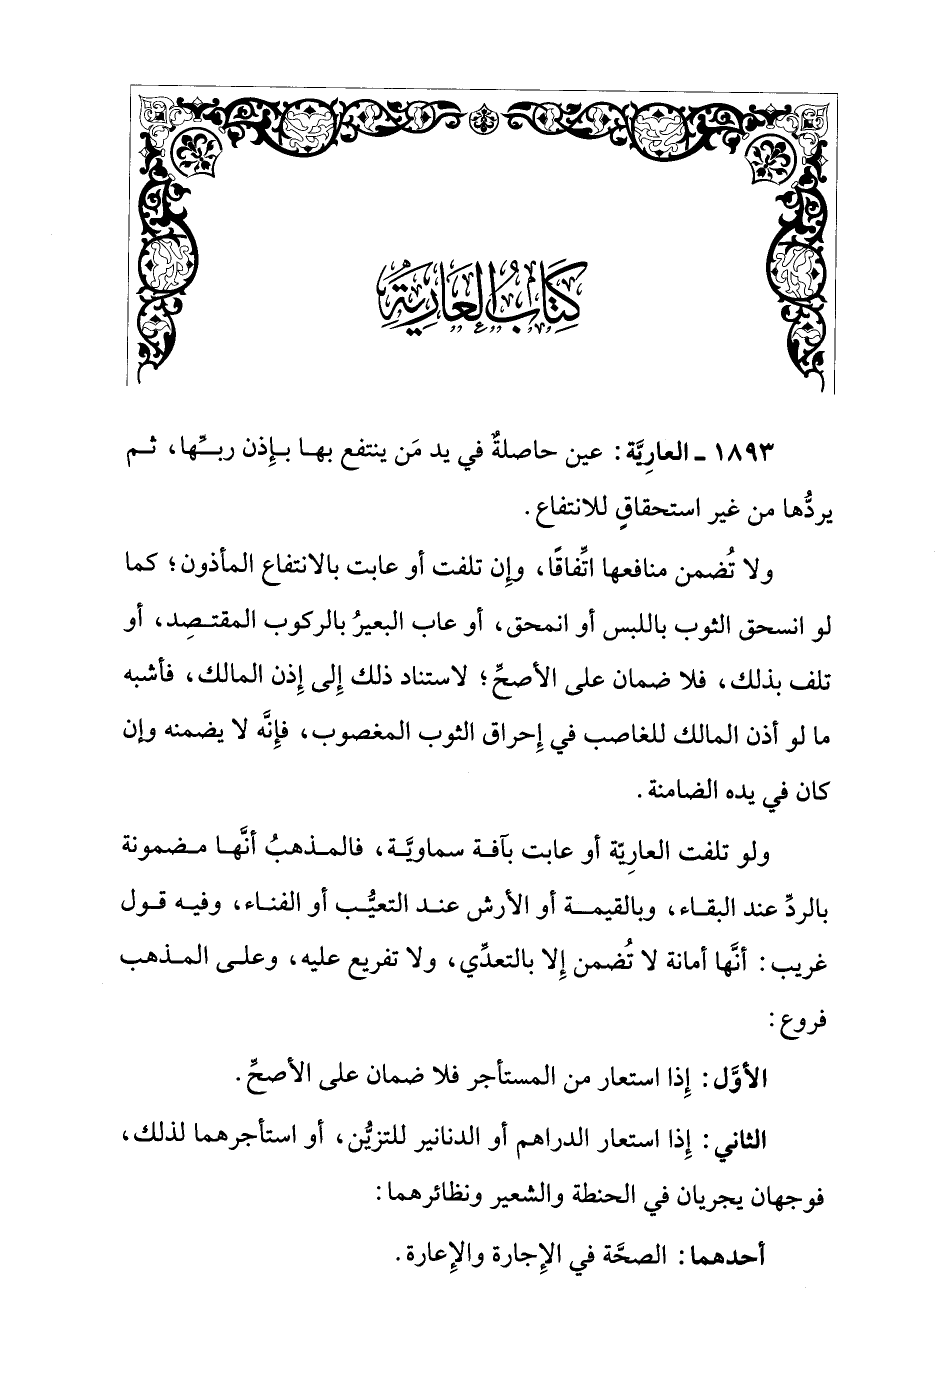 كِتَابُ العَارِيَةِ
١٨٩٣ ـ العارِيَّة: عين حاصلةٌ في يد مَن ينتفع بها بإذن ربِّها، ثم
يردُّها من غير استحقاقٍ للانتفاع.
ولا تُضمن منافعها اتِّفاقًا، وإن تلفت أو عابت بالانتفاع المأذون؛ كما
لو انسحق الثوب باللبس أو انمحق، أو عاب البعيرُ بالركوب المقتصِد، أو
تلف بذلك، فلا ضمان على الأصحِّ؛ لاستناد ذلك إلى إذن المالك، فأشبه
ما لو أذن المالك للغاصب في إحراق الثوب المغصوب، فإنَّه لا يضمنه وإن
كان في يده الضامنة.
ولو تلفت العارِيّة أو عابت بآفة سماويَّة، فالمذهبُ أنَّها مضمونة
بالردِّ عند البقاء، وبالقيمة أو الأرش عند التعيُّب أو الفناء، وفيه قول
غريب: أنَّها أمانة لا تُضمن إلا بالتعدِّي، ولا تفريع عليه، وعلى المذهب
فروع:
الأوَّل: إذا استعار من المستأجر فلا ضمان على الأصحِّ.
الثاني: إذا استعار الدراهم أو الدنانير للتزيُّن، أو استأجرهما لذلك،
فوجهان يجريان في الحنطة والشعير ونظائرهما:
أحدهما: الصحَّة في الإجارة والإعارة.